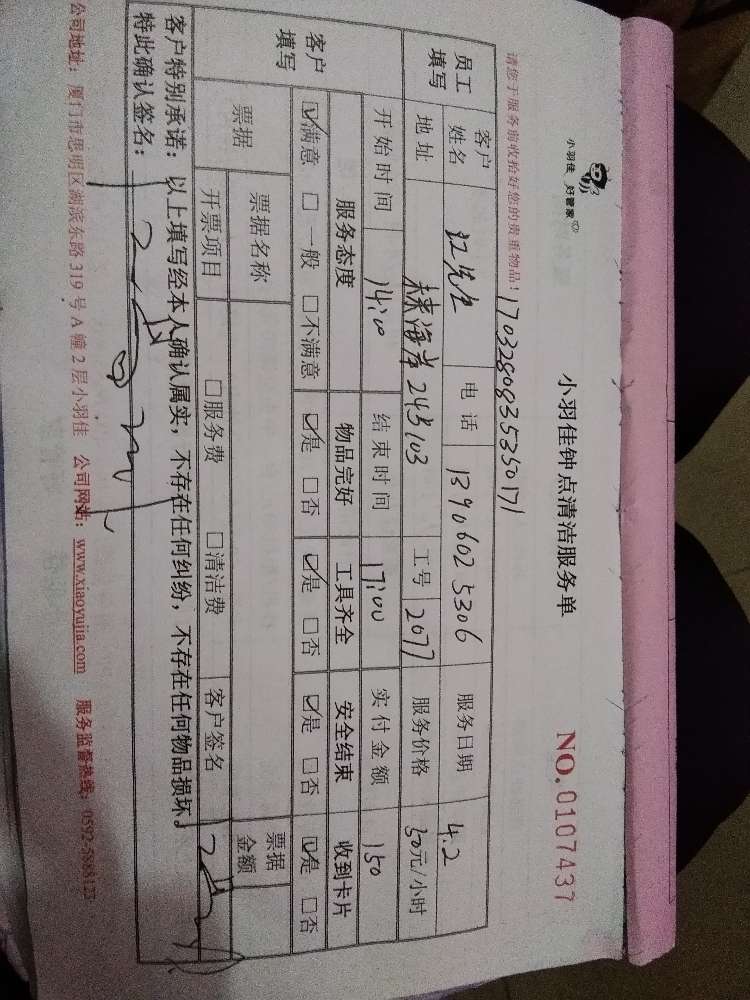 小羽佳 好管家
小羽佳钟点清洁服务单
NO.0107437
请您于服务前收拾好您的贵重物品！
1703280835350171
员工填写 客户姓名 江先生 电话 13906025306 服务日期 4.2
地址 海岸24号103 工号 2077 服务价格 50元/小时
客户填写 开始时间 14:00 结束时间 17:00 实付金额 150
服务态度 物品完好 工具齐全 安全结束 收到卡片
☑满意 □一般 □不满意 ☑是 □否 ☑是 □否 ☑是 □否 ☑是 □否
票据 票据名称 票据金额
开票项目 □服务费 □清洁费 客户签名
客户特别承诺：以上填写经本人确认属实，不存在任何纠纷，不存在任何物品损坏。
特此确认签名：
公司地址：厦门市思明区湖滨东路319号A幢2层小羽佳 公司网站：www.xiaoyujia.com 服务监督热线：0592-5888123